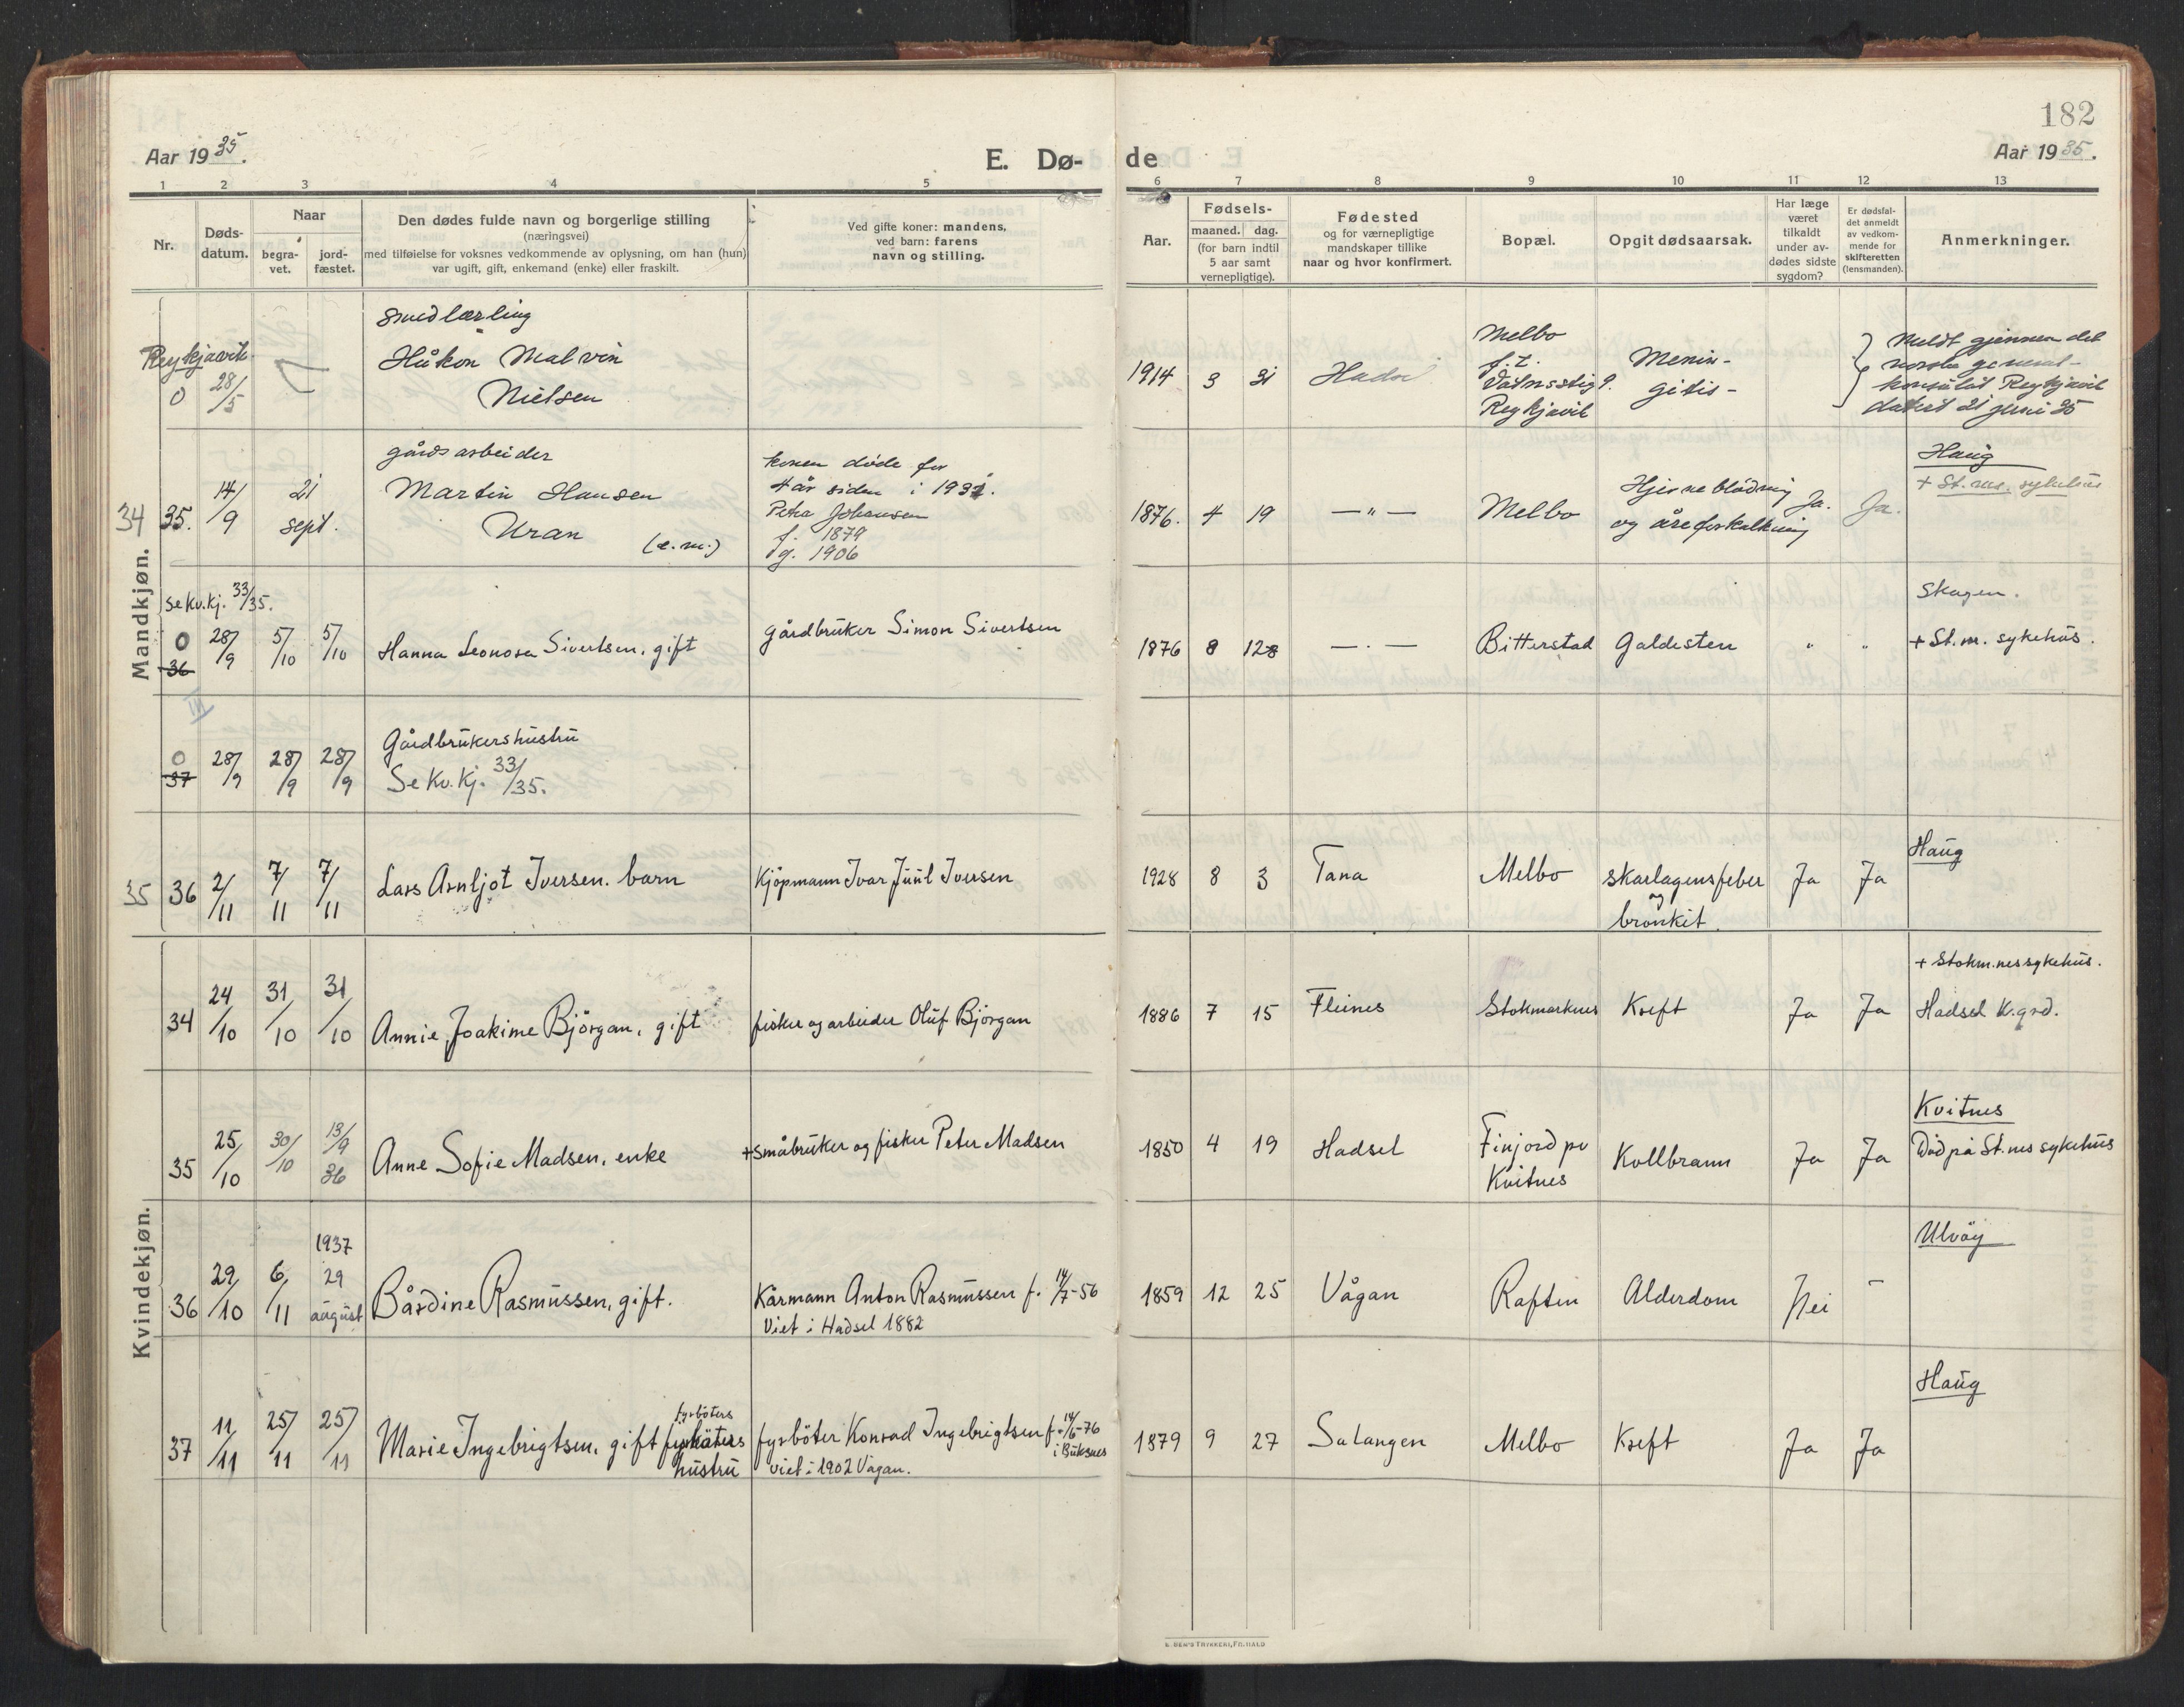 182
Aar 1935.
E. Dø-
de
Aar 1935.
1 2 3 4 5 6 7 8 9 10 11 12 13
Nr.
Døds-
datum.
Naar
begra-
vet.
jord-
fæstet.
Den dødes fulde navn og borgerlige stilling
(næringsvei)
med tilføielse for voksnes vedkommende av oplysning, om han (hun)
var ugift, gift, enkemand (enke) eller fraskilt.
Ved gifte koner: mandens,
ved barn: farens
navn og stilling.
Aar.
Fødsels-
maaned. dag.
(for barn indtil
5 aar samt
vernepligtige).
Fødested
og for værnepligtige
mandskaper tillike
naar og hvor konfirmert.
Bopæl.
Opgit dødsaarsak.
Har læge
været
tilkaldt
under av-
dødes sidste
sygdom?
Er dødsfal-
det anmeldt
av vedkom-
mende for
skifteretten
(lensmanden).
Anmerkninger.
Mandkjøn.
Reykjavik
0 28/5
smedlærling
Håkon Malvin
Nielsen
1914 3 31 Hadsel
Melbo
f.t.
Vatnsstig 9.
Reykjavik
Menin-
gitis-
Meldt gjennem det
norske general-
konsulat Reykjavik
datert 21 juni 35
34 35. 14/9 21 sept.
gårdsarbeider
Martin Hansen
Uran (e.m.)
konen døde for
4 år siden i 1931.
Petra Johansen
f. 1879
g. 1906
1876. 4 19 —"— Melbo
Hjerneblødning
og åreforkalkning
Ja. Ja.
Haug
+ St.ms. sykehus
Se Kv.kj. 33/35.
0 36 28/9 5/10 5/10 Hanna Leonora Sivertsen, gift
gårdbruker Simon Sivertsen
1876 8 128 — . — Bitterstad Galdesten " "
Skagen.
+ St.m. sykehus.
III
0 37 28/9 28/9 28/9
Gårdbrukershustru
Se Kv.kj. 33/35.
35 36 2/11 7/11 7/11 Lars Arnljot Iversen. barn
Kjöpmann Ivar Juul Iversen
1928 8 3 Tana Melbo
skarlagensfeber
og
bronkit.
Ja Ja
Haug
Kvindekjøn.
34 24/10 31/10 31/10 Annie Joakime Björgan, gift
fisker og arbeider Oluf Björgan
1886 7 15 Fleines Stokmarknes Kreft Ja Ja
+ Stokm.nes sykehus.
Hadsel k.grd.
35 25/10 30/10 13/9 36 Anne Sofie Madsen, enke
+ småbruker og fisker Peter Madsen
1850 4 19 Hadsel
Finjord pr
Kvitnes
Kollbrann Ja Ja
Kvitnes
Död på St.nes sykehus
36 29/10 6/11 1937 29 august Bårdine Rasmussen, gift.
Kårmann Anton Rasmussen f. 14/7-56
Viet i Hadsel 1882
1859 12 25 Vågan Raften Alderdom Nei –
Ulvöy
37 11/11 25/11 25/11 Marie Ingebrigtsen, gift fyrböters
hustru
fyrböter Konrad Ingebrigtsen f. 14/6-76
i Buksnes
viet i 1902 Vågan.
1879 9 27 Salangen Melbo Kreft Ja Ja
Haug